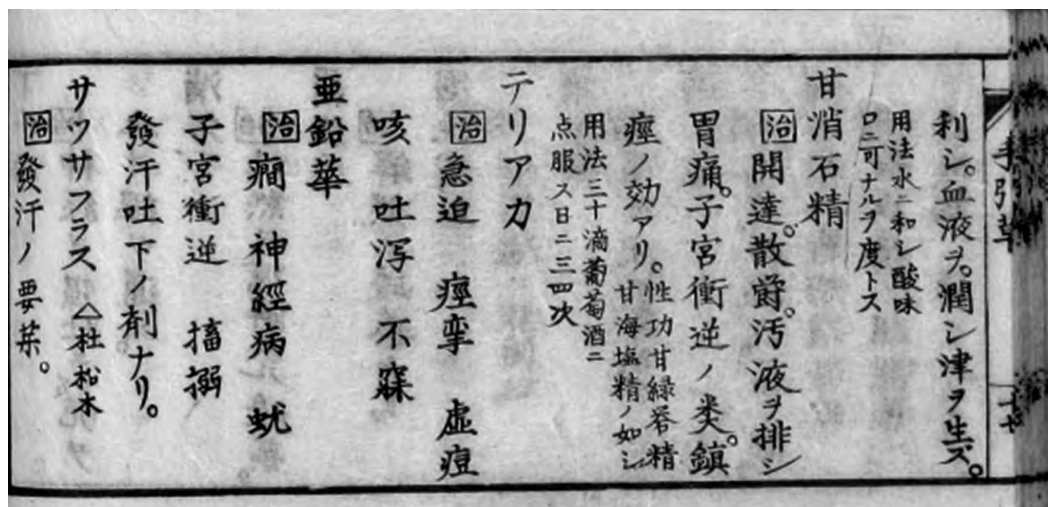 手引草
利シ。血液ヲ。潤シ津ヲ生ズ。
用法水ニ和シ酸味
口ニ可ナルヲ度トス
甘消石精
治 開達。散欝。汚液ヲ排シ
胃痛。子宮衝逆ノ類。鎮
痙ノ効アリ。性功甘緑礬精
甘海塩精ノ如シ
用法三十滴葡萄酒ニ
点服ス日ニ三四次
テリアカ
治 急迫 痙挛 虚痘
咳 吐瀉 不寐
亜鉛華
治 癇 神經病 蚘
子宮衝逆 搐搦
發汗吐下ノ劑ナリ。
サツサフラス △杜松木
治 發汗ノ要藥。